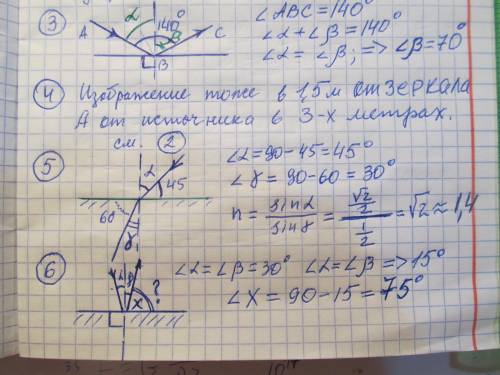 3
α
140°
β
A
C
B
∠ABC = 140°
∠α + ∠β = 140°
∠α = ∠β; => ∠β = 70°
4 Изображение тоже в 1,5 м от ЗЕРКАЛА
А от источника в 3-х метрах.
5
см. 2
α
45
60
γ
∠α = 90 - 45 = 45°
∠γ = 90 - 60 = 30°
n = sin α / sin γ = (√2/2) / (1/2) = √2 ≈ 1,4
6
α β
?
x
∠α = ∠β = 30° ∠α = ∠β => 15°
∠X = 90 - 15 = 75°